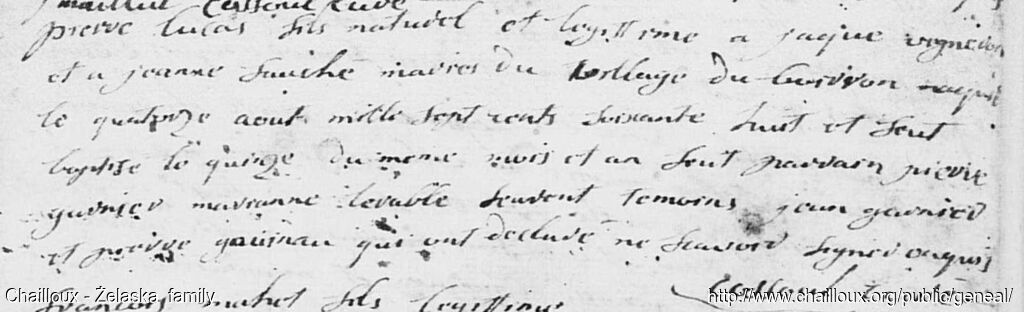 pierre lucas fils naturel et legittime a jaque vigneron
et a jeanne sauché maries du village du naquit
le quatorze aout mille sept cents soixante huit et feut
baptize le quinze du meme mois et an feut parrain pierre
garnier marranne feurent temoins jean garnier
et pierre qui ont declaré ne scavoir signer enquis
françois michel fils legittime
Chailloux - Želaska family
http://www.chailloux.org/public/geneal/